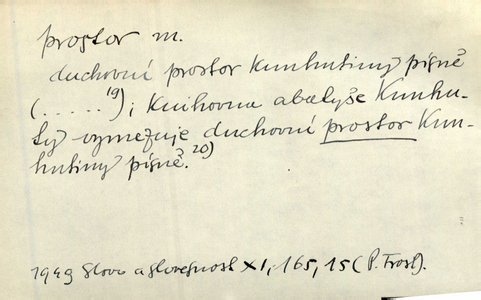 prostor m.
duchovní prostor Kunhutiny písně
(.....19)); Knihovna abatyše Kunhu-
ty vymezuje duchovní prostor Kun-
hutiny písně.20)
1949 Slovo a slovesnost XI, 165, 15 (P. Trost).